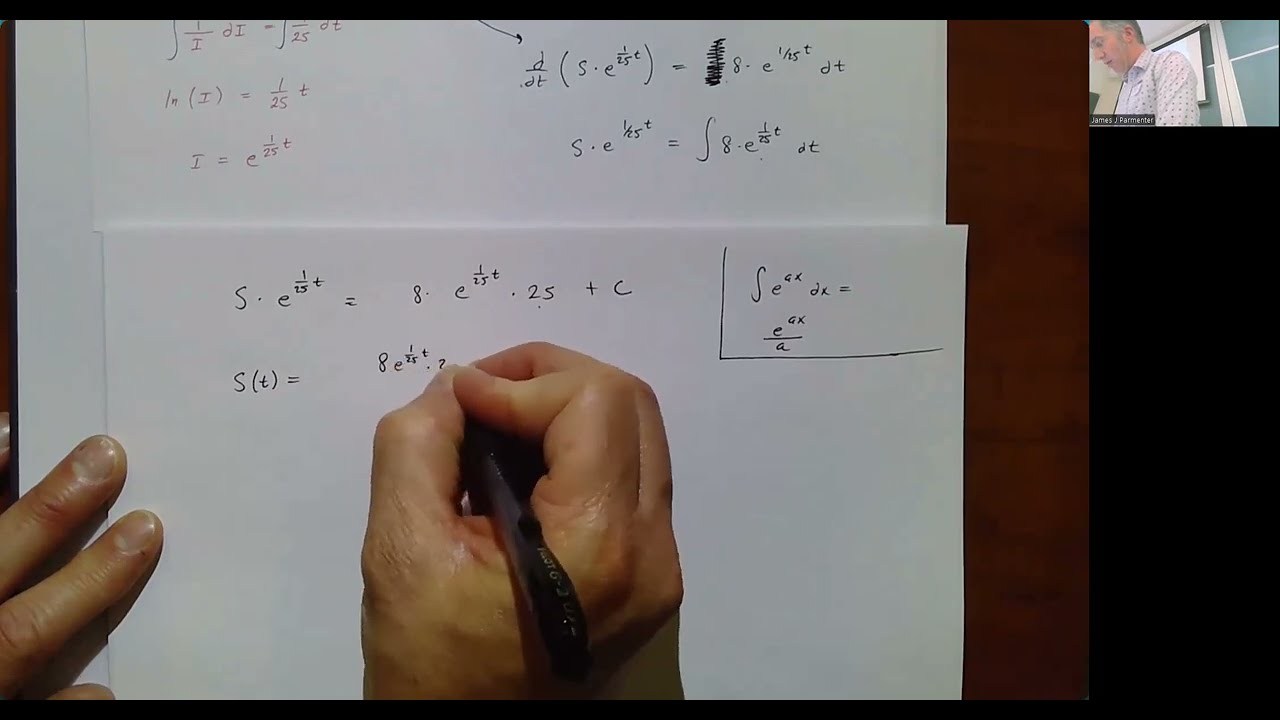 ∫ 1/I dI = ∫ 1/25 dt
ln(I) = 1/25 t
I = e^(1/25 t)
d/dt (S·e^(1/25 t)) = 8·e^(1/25 t) dt
S·e^(1/25 t) = ∫ 8·e^(1/25 t) dt
S·e^(1/25 t) = 8·e^(1/25 t)·25 + C
S(t) = 8e^(1/25 t)·2
∫ e^(ax) dx =
e^(ax)/a
James J Parmenter